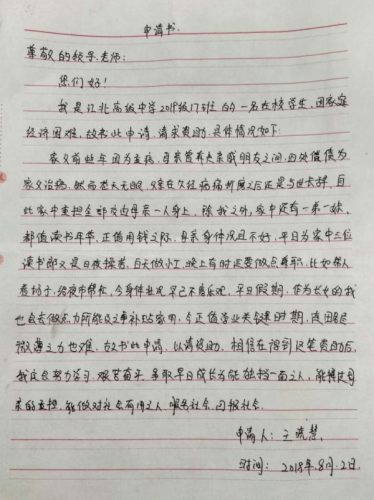 申请书
尊敬的领导、老师：
您们好！
我是江北高级中学2018级17班的一名在校学生、因家庭
经济困难、故书此申请、请求资助、具体情况如下：
家父前些年因为重病、母亲曾奔走亲戚朋友之间、四处借债为
家父治病、然而苍天无眼、父亲在久经病痛折磨之后还是与世长辞、自
此家中重担全部交由母亲一人身上、除我之外、家中还有一弟一妹、
都值读书年华、正值用钱之际、母亲身体况且不好、平日为家中三位
读书郎又是日夜操劳、白天做小工、晚上有时还要做点兼职、比如帮人
看场子、给夜市帮忙、今身体状况早已不容乐观、早日假期、作为长女的我
也会去做点力所能及之事补贴家用、今正值学业关键时期、连图尽
微薄之力也难、故书此申请、以请资助、相信在得到这笔资助后、
我定会努力学习、艰苦奋斗、争取早日成长为能独挡一面之人、能接过母
亲的重担、能做对社会有用之人、服务社会、回报社会、
申请人：王晓慧
时间：2018年8月2日